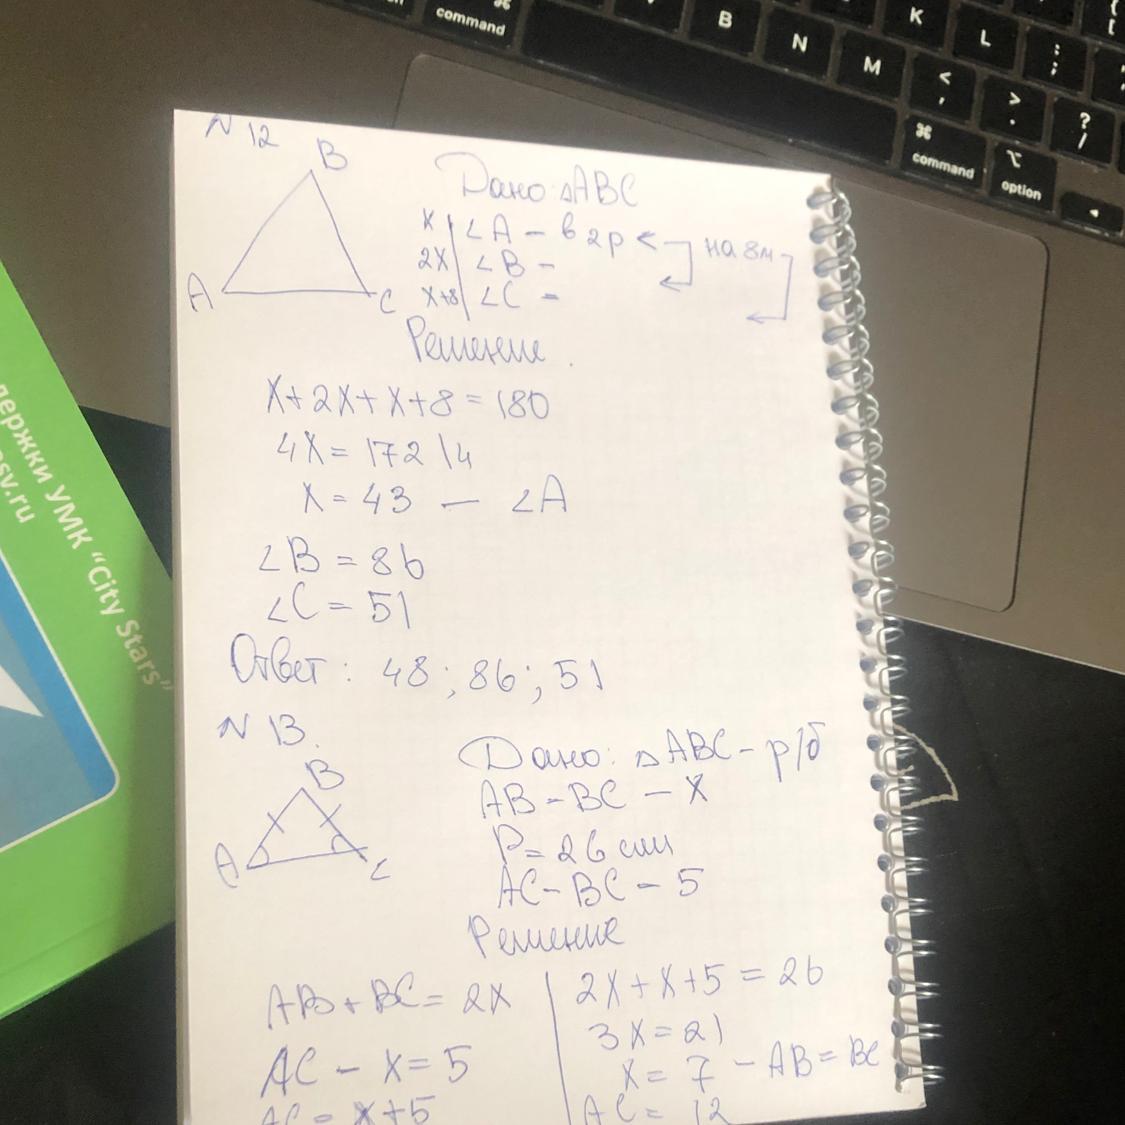 command
B
N
M
K
L
:
;
<
,
>
.
?
/
⌘
command
⌥
option
держки УМК "City Stars"
sv.ru
N 12
B
A
C
Дано: △ABC
x ∠A - в 2р на 8м
2x ∠B -
x+8 ∠C =
Решение
x+2x+x+8=180
4x=172 |4
x=43 — ∠A
∠B = 86
∠C = 51
Ответ: 48; 86; 51
N 13.
B
A
C
Дано: △ABC - р/б
AB=BC - x
P=26 см
AC-BC - 5
Решение
AB+BC= 2x
AC - x = 5
AC = x+5
2x+x+5 = 26
3x=21
x= 7 - AB=BC
AC= 12